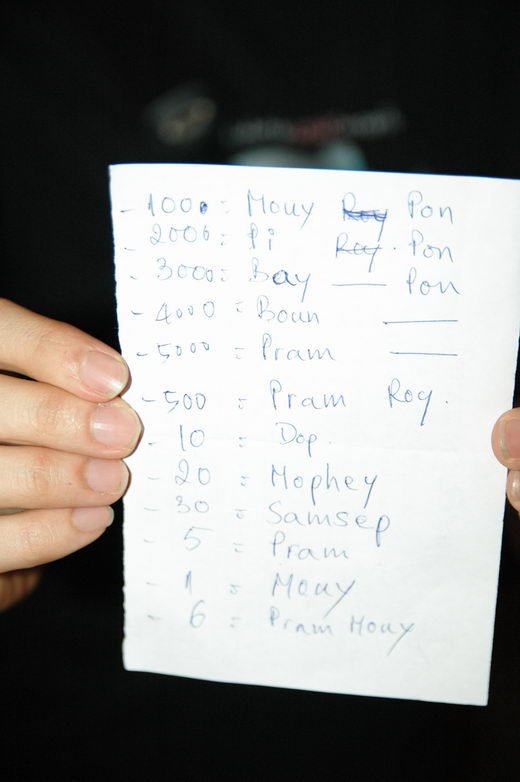 - 1000 = Mouy Roy Pon
- 2000 = Pi Roy. Pon
- 3000 = Bay — Pon
- 4000 = Boun —
- 5000 = Pram —
- 500 = Pram Roy.
- 10 = Dop.
- 20 = Mophey
- 30 = Samsep
- 5 = Pram
- 1 = Mouy
- 6 = Pram Mouy